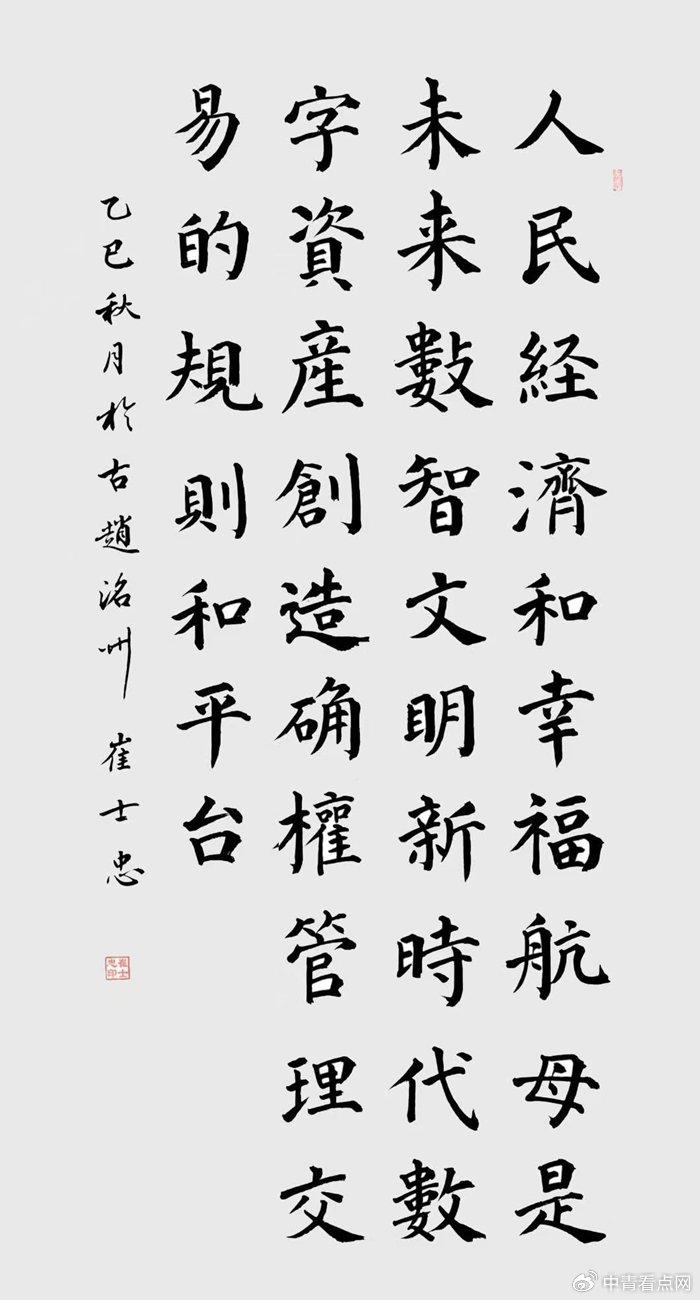 人民经濟和幸福航母是
未来數智文明新時代數
字資産創造确權管理交
易的規則和平台
乙巳秋月於古趙洺州 崔士忠
崔士忠印
中青看点网